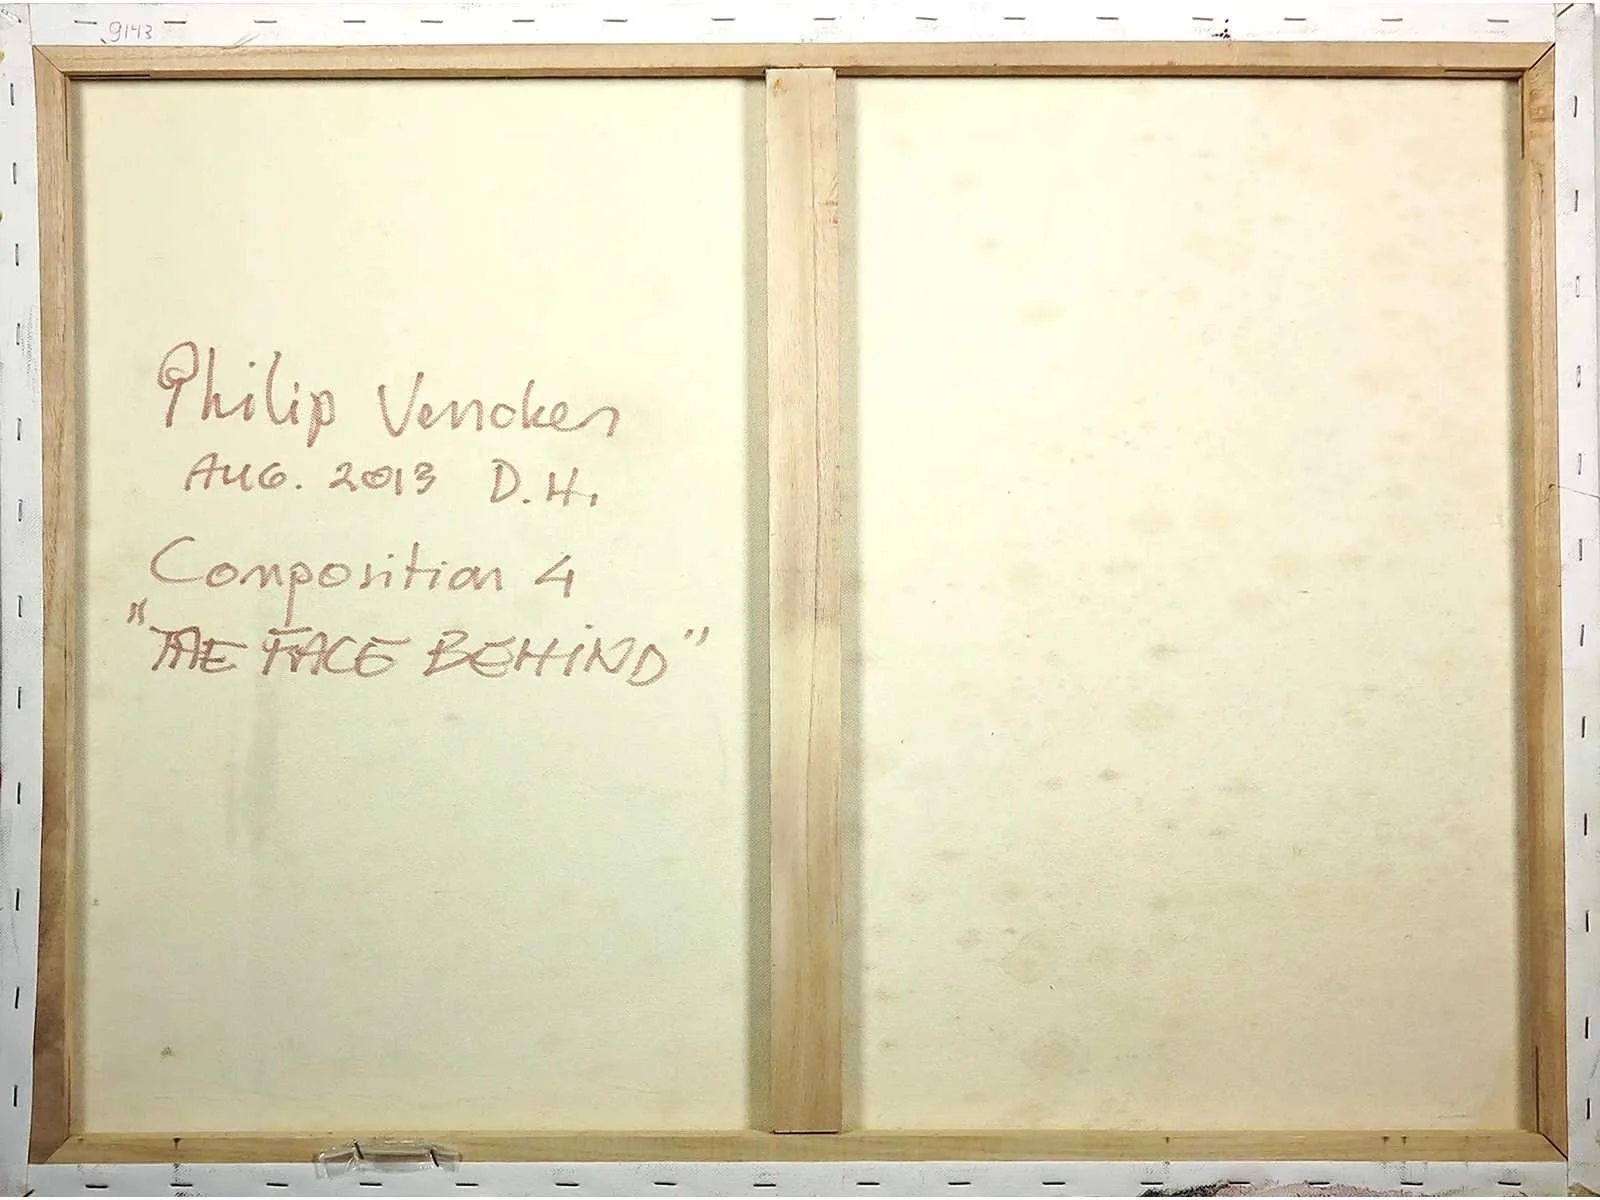 9143
Philip Vencken
AUG. 2013 D.H.
Composition 4
"THE FACE BEHIND"